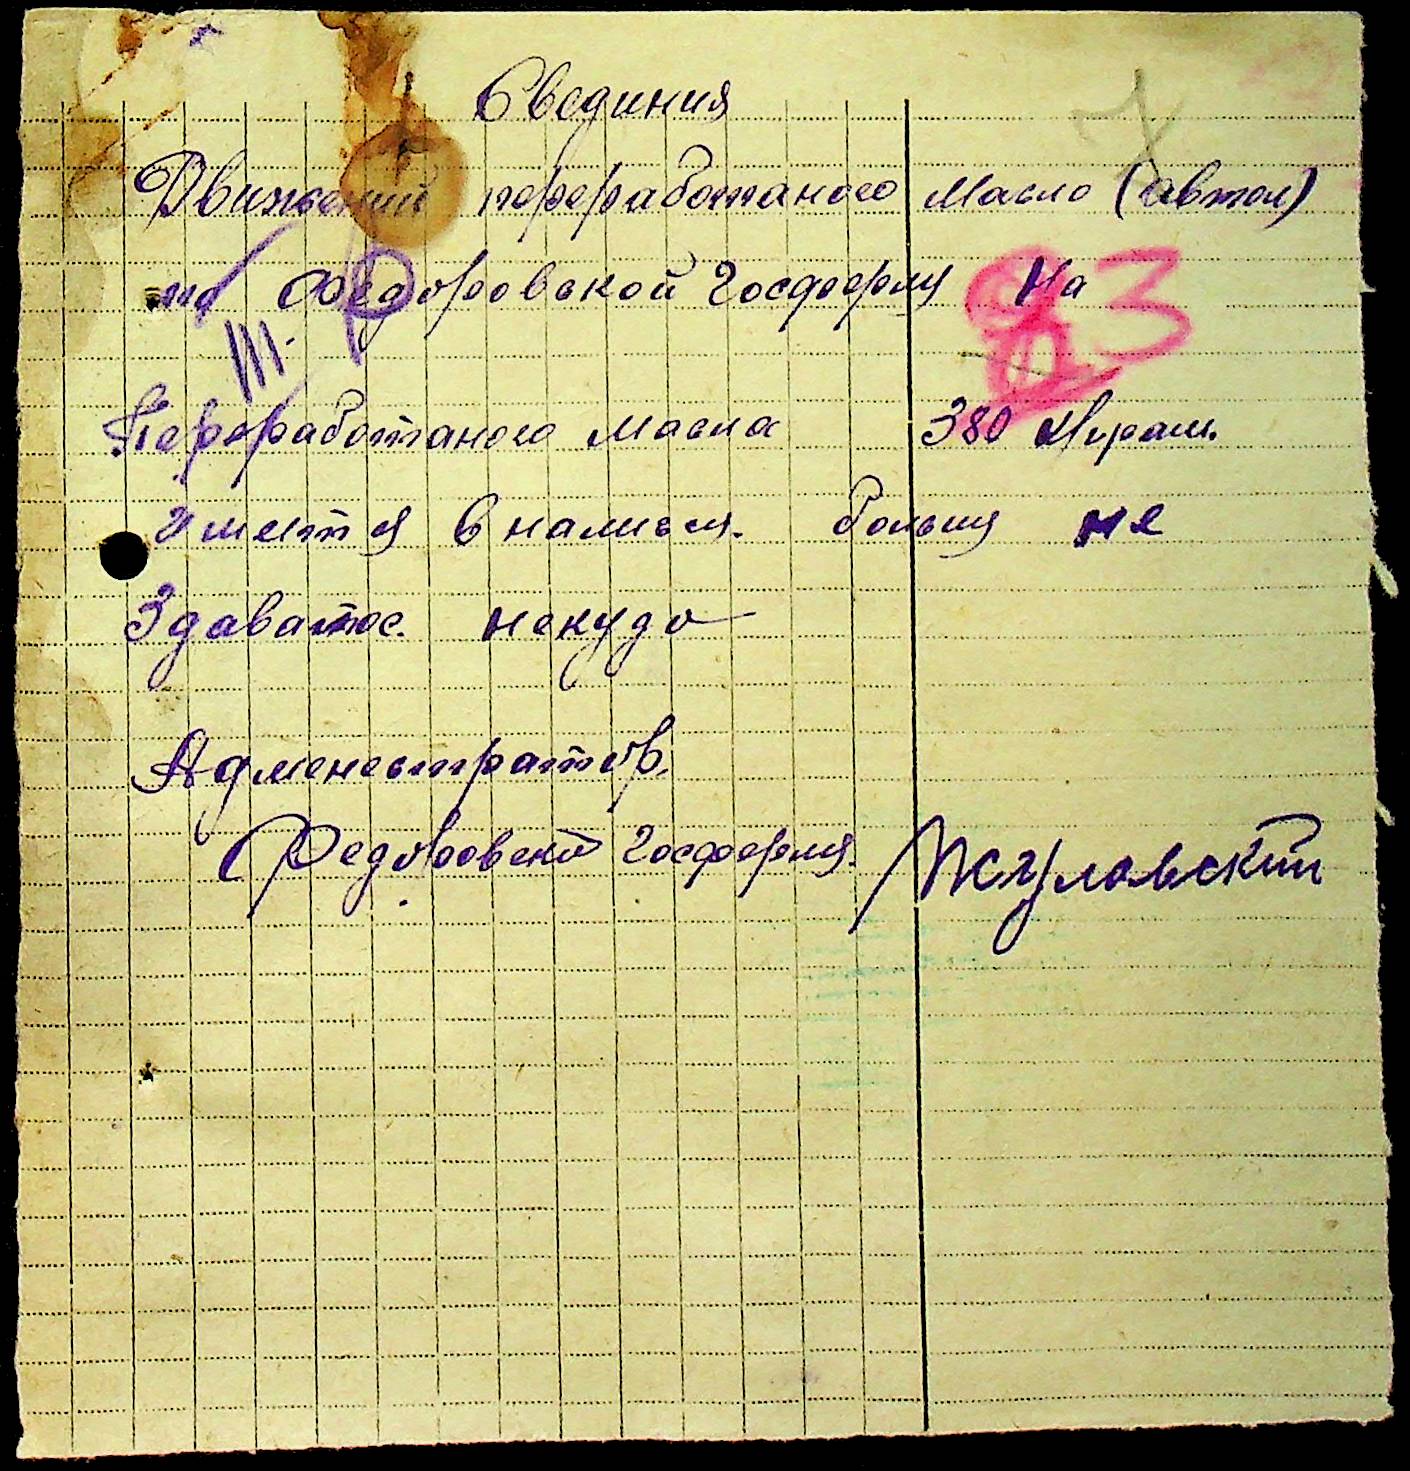 Свединия
Движений переработаного масло (автол)
по Федоровской Госферму На
83
III.
Переработаного масла 380 Кграм.
имеится в налиси. больши не
Здаватос. некудо
Адменестратор.
Федоровской Госферми. Жуловский